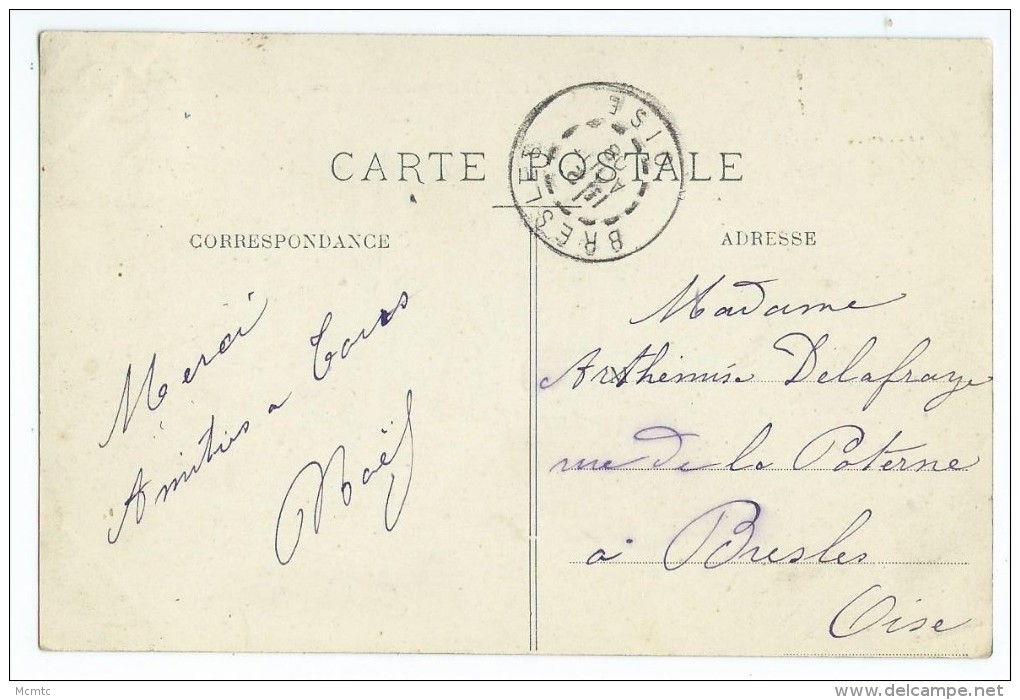 CARTE POSTALE
BRESLES
OISE
CORRESPONDANCE
ADRESSE
Merci
Amitiés a tous
Noël
Madame
Arthémise Delafraye
rue de la Poterne
à Bresles
Oise
Mcmtc
www.delcampe.net